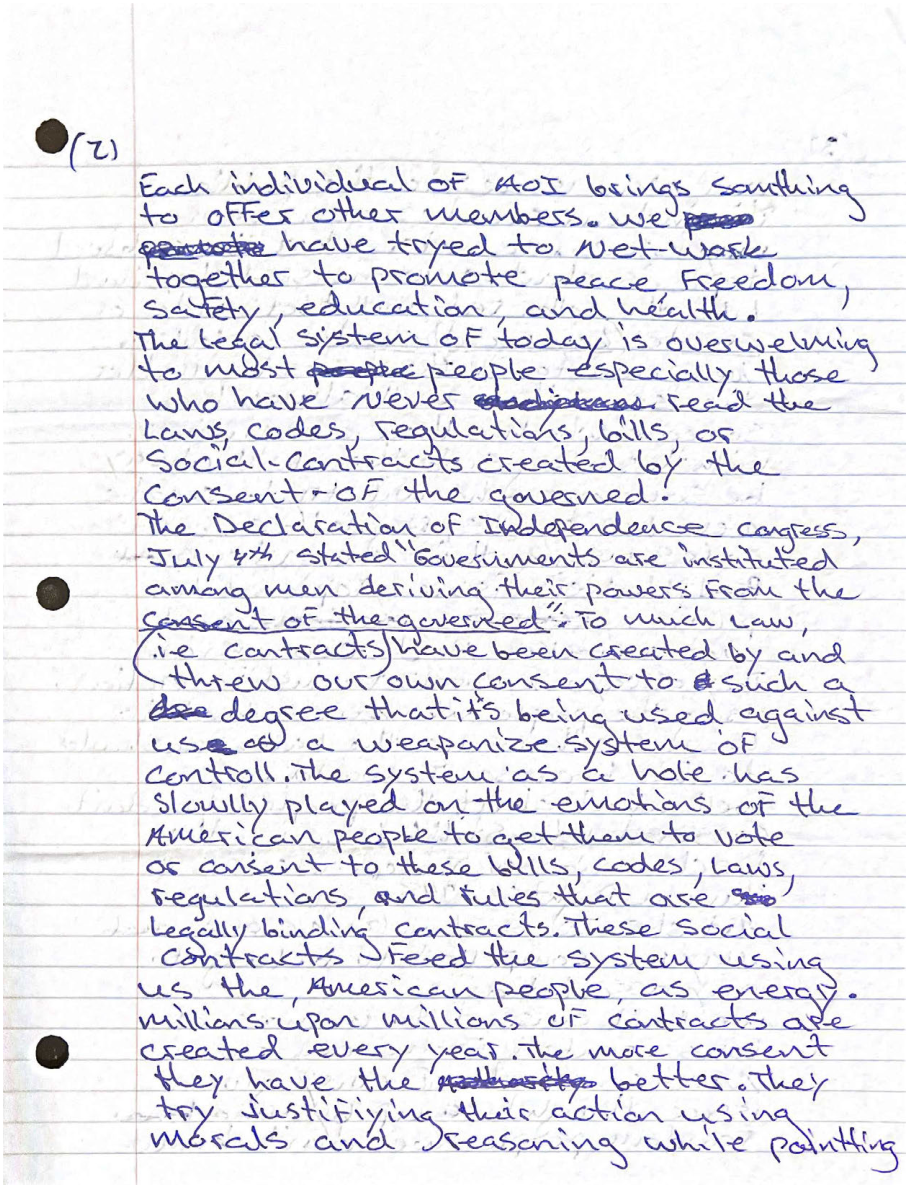 (2)
Each individual of AOI brings somthing
to offer other members. We
have tryed to Net-Work
together to promote peace, Freedom,
safety, education, and health.
The Legal System of today is overwelming
to most people especially those
who have Never read the
Laws, codes, regulations, bills, or
Social-Contracts created by the
Consent-of the governed.
The Declaration of Independence congress,
July 4th stated "Goverunments are instituted
among men deriving their powers from the
consent of the governed". To much Law,
(i.e contracts) have been created by and
threw our own consent to such a
degree that it's being used against
us as a weaponize system of
controll. The system as a hole has
slowlly played on the emotions of the
American people to get them to vote
or consent to these bills, codes, Laws,
regulations, and rules that are
Legally binding contracts. These social
contracts Feed the system using
us the, American people, as energy.
millions upon millions of contracts are
created every year. The more consent
they have the better. They
try justifiying their action using
morals and reasoning while pointting